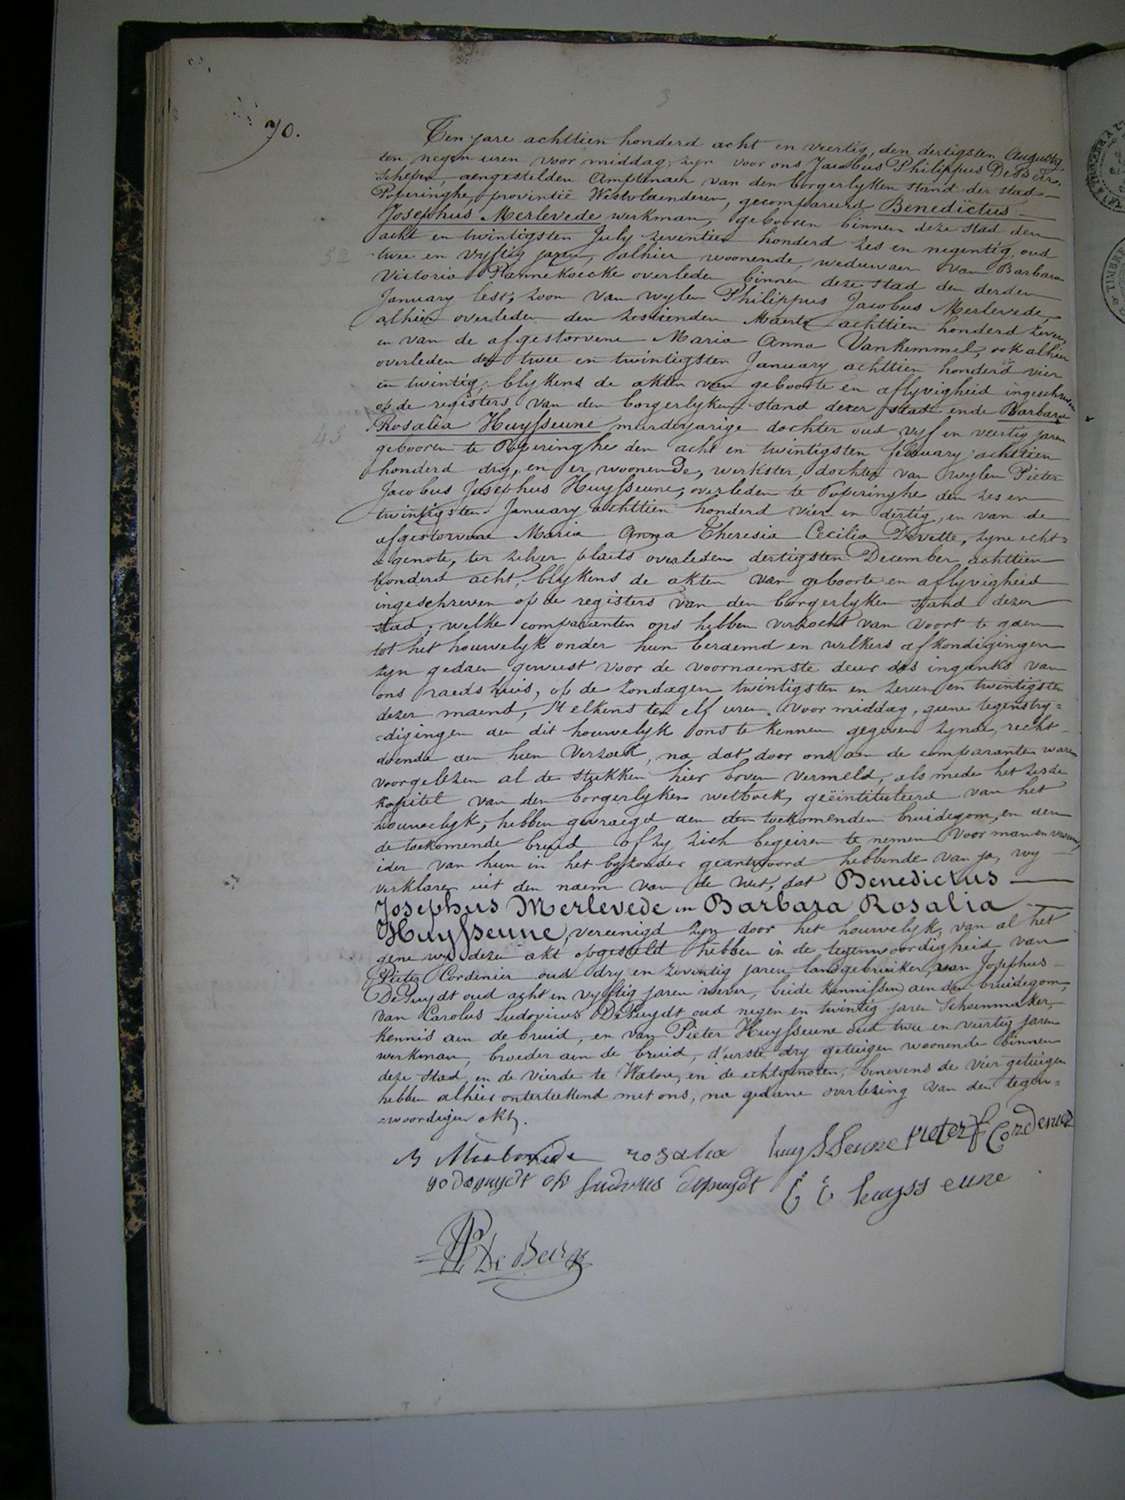 3
70.
Ten jare achttien honderd acht en veertig, den dertigsten Augusty,
ten negen uren voor middag, zyn voor ons Jacobus Philippus De Bere,
Schepen, aengestelden Amptenaer van den borgerlyken stand der stad
Poperinghe, provintië Westvlaenderen, gecompareerd Benedictus
Josephus Merlevede werkman, gebooren binnen deze stad den
acht en twintigsten July zeventien honderd zes en negentig, oud
52
twee en vyftig jaren, alhier woonende, weduwaer van Barbara
Victoria Pannekoecke overleden binnen deze stad den derden
January lest, zoon van wylen Philippus Jacobus Merlevede,
alhier overleden den zestienden Maerte achttien honderd zeven,
en van de afgestorvene Maria Anna Vankemmel, ook alhier
overleden den twee en twintigsten January achttien honderd vier
en twintig, blykens de akten van geboorte en aflyvigheid ingeschreven
op de registers van den borgerlyken stand dezer stad ende Barbara
45
Rosalia Huysseune meerderjarige dochter oud vyf en veertig jaren
gebooren te Poperinghe den acht en twintigsten february achttien
honderd dry, en er woonende, werkster, dochter van wylen Pieter
Jacobus Josephus Huysseune, overleden te Poperinghe den zes en
twintigsten January achttien honderd vier en dertig, en van de
afgestorvene Maria Anna Theresia Cecilia Devette, zyne echt-
genote, ter zelver plaets overleden dertigsten December achttien
honderd acht, blykens de akten van geboorte en aflyvigheid
ingeschreven op de registers van den borgerlyken stand dezer
stad; welke comparanten ons hebben verzocht van voort te gaen
tot het houwelyk onder hun beraemd en welkers afkondigingen
zyn gedaen geweest voor de voornaemste deur des ingangs van
ons raedshuis, op de zondagen twintigsten en zeven en twintigsten
dezer maend, t'elkens ten elf uren voor middag, geene tegenstry-
digingen aen dit houwelyk ons te kennen gegeven zynde, recht
doende aen hun verzoek, na dat door ons aen de comparanten waren
voorgelezen al de stukken hier boven vermeld, als mede het zesde
kapitel van den borgerlyken wetboek, geïntituleerd van het
houwelyk, hebben gevraegd aen den toekomenden bruidegom, en aen
de toekomende bruid of zy zich begeiren te nemen voor man en vrouw,
ider van hun in het byzonder geantwoord hebbende van ja, wy
verklaren uit den naem van de wet, dat Benedictus
Josephus Merlevede en Barbara Rosalia
Huysseune, vereenigd zyn door het houwelyk, van al het
gene wy deze akt opgesteld hebben in de tegenwoordigheid van
Pieter Cordenier oud dry en zeventig jaren landgebruiker, van Josephus
DePuydt oud acht en vyftig jaren wever, beide kennissen aen den bruidegom
van Carolus Ludovicus DePuydt oud negen en twintig jaren Schoenmaker,
kennis aen de bruid, en van Pieter Huysseune oud twee en veertig jaren
werkman, broeder aen de bruid, d'eerste dry getuigen woonende binnen
deze stad en de vierde te Watou, en de echtgenoten, benevens de vier getuigen
hebben alhier onterteekend met ons, na gedaene overlezing van den tegen-
woordigen akt.
B Merlevede rosalia huysseune Pieter Cordenier
Ludvicus depuydt huysseune
De Bere